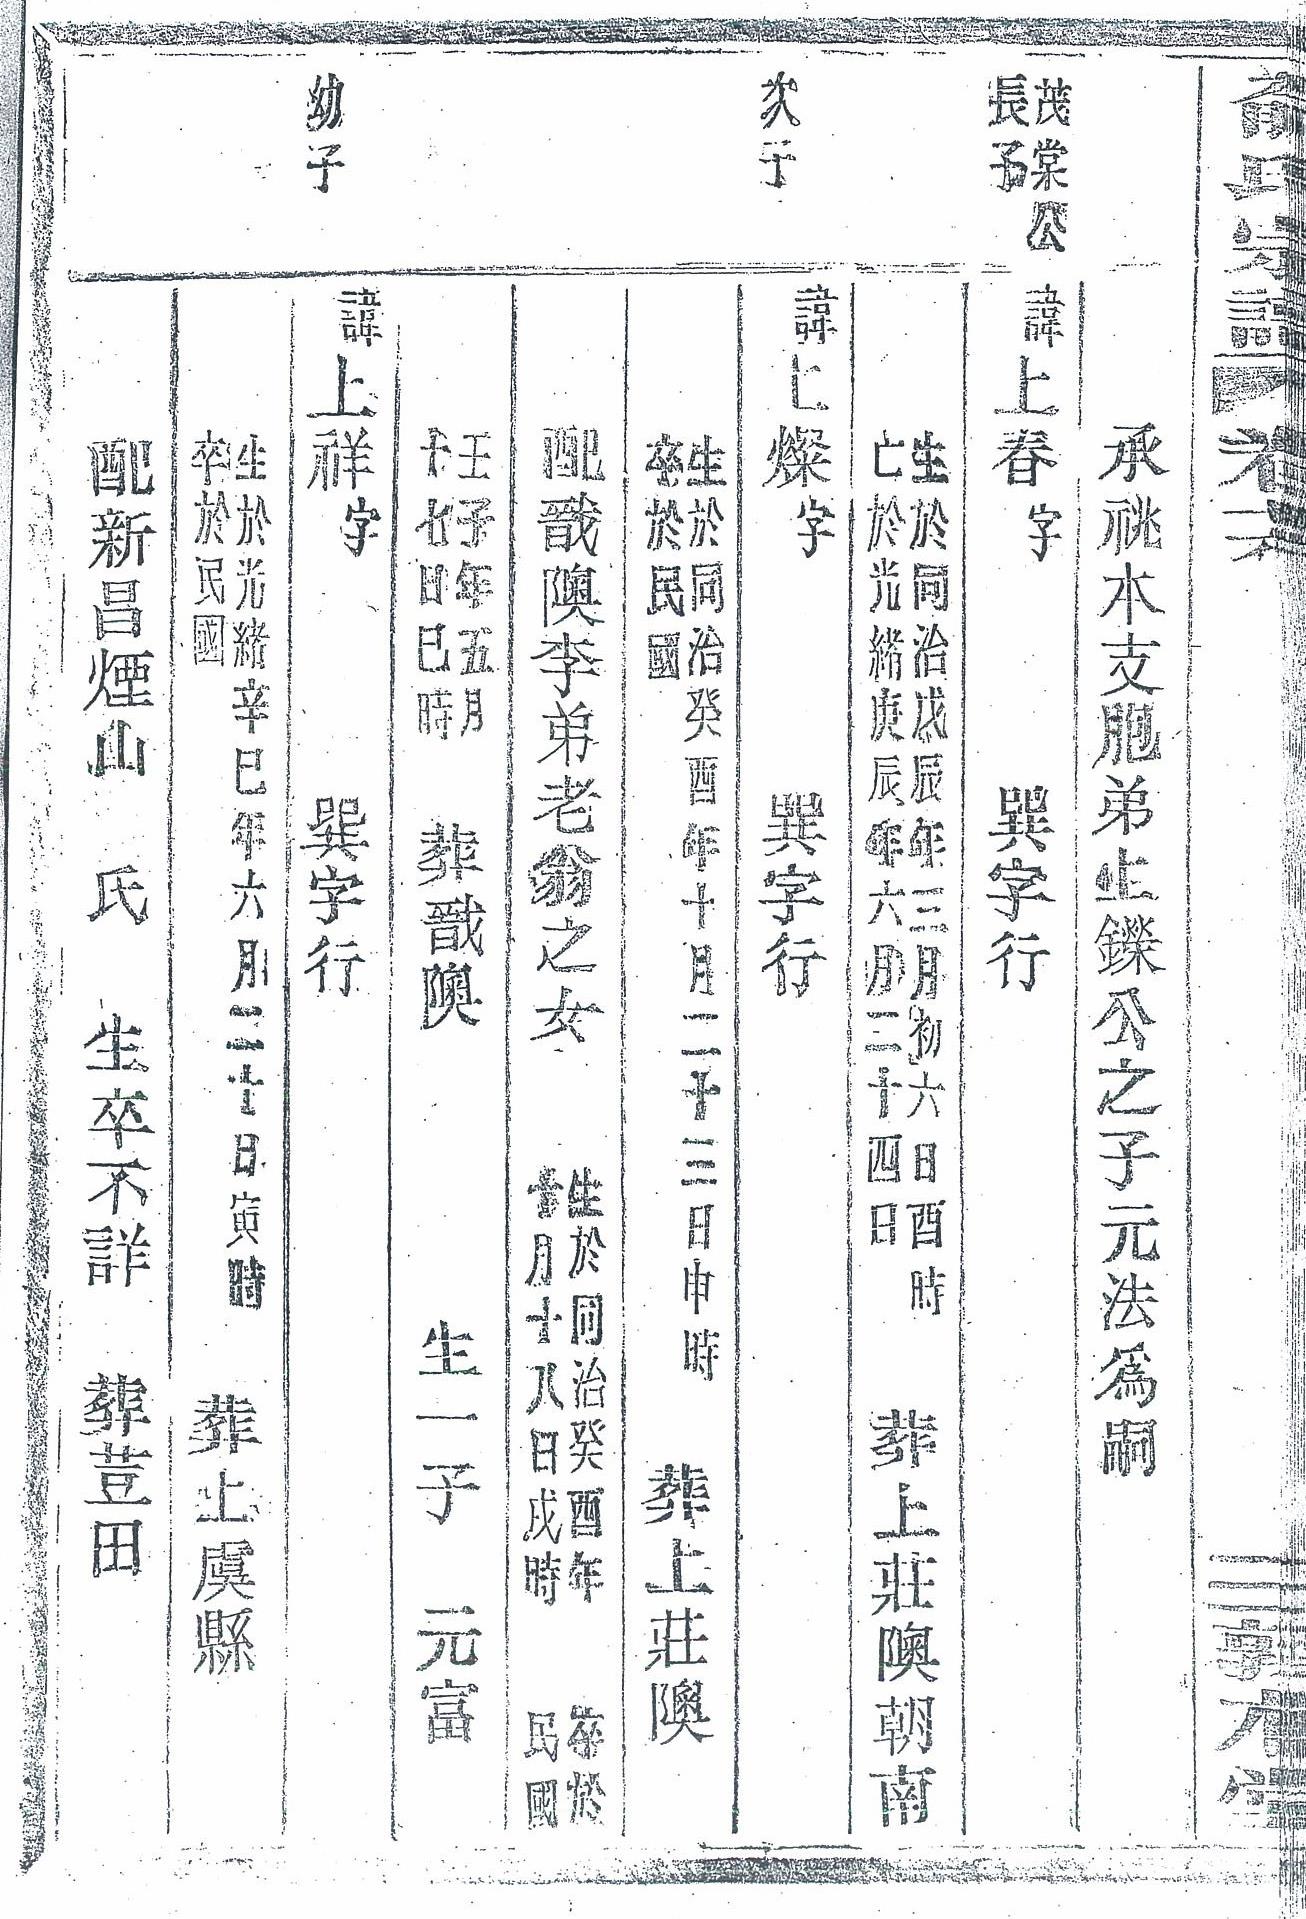 氏宗譜 卷六
三 敦本堂
承祧本支胞弟上鑠公之子元法爲嗣
茂棠公
長子
諱上春字 巽字行
生於同治戊辰年三月初六日酉時
亡於光緒庚辰年六月二十四日
葬上莊隩朝南
次子
諱上燦字 巽字行
生於同治癸酉年十月二十三日申時
卒於民國
葬上莊隩
配戩隩李弟老翁之女
生於同治癸酉年
十月十八日戌時
卒於
民國
壬子年五月
十七日巳時
葬戩隩 生一子 元富
幼子
諱上祥字 巽字行
生於光緒辛巳年六月二十日寅時
卒於民國
葬上虞縣
配新昌煙山 氏 生卒不詳 葬荳田